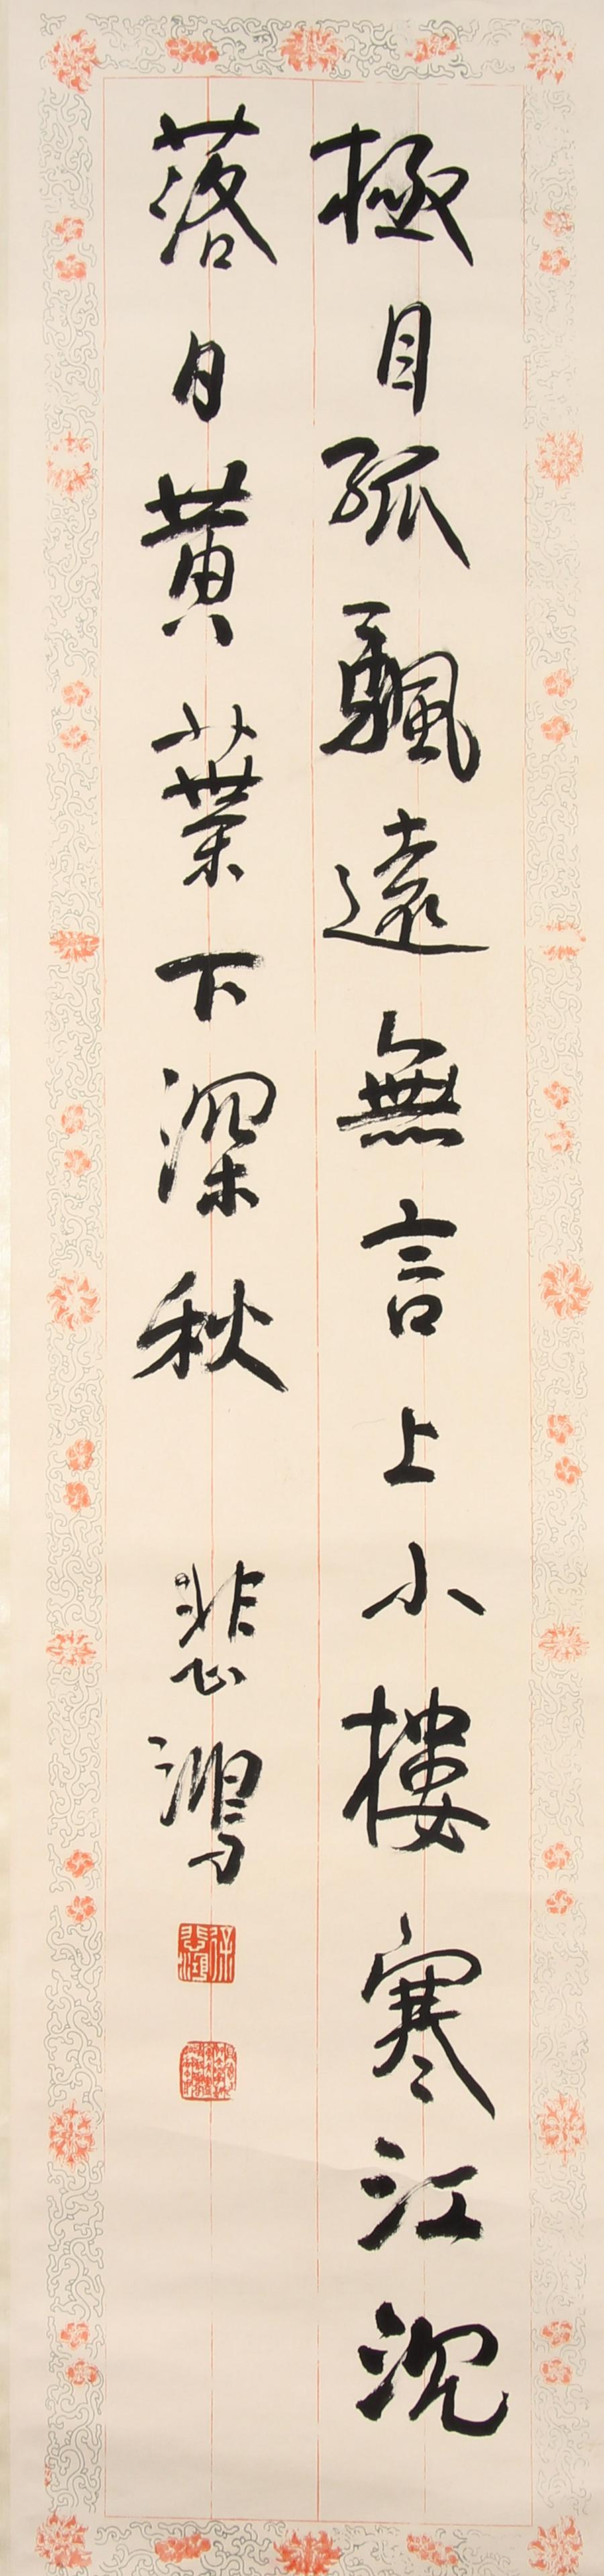 極目孤飄遠無言上小樓寒江沉
落日黃葉下深秋 悲鴻
徐悲鴻